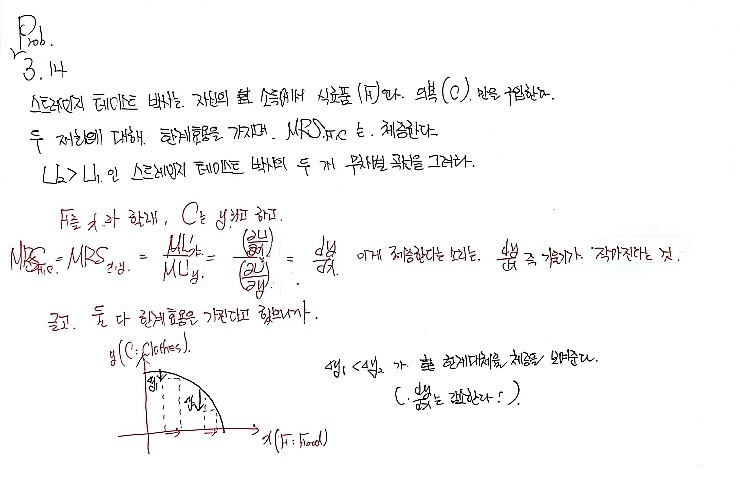 Prob.
3.14
스트레인지 테이스트 박사는 자신의 소득에서 식료품(F)과 의복(C)만을 구입한다.
두 재화에 대해 한계효용을 가지며, MRS F,C 는 체증한다.
U₂>U₁ 인 스트레인지 테이스트 박사의 두 개 무차별 곡선을 그려라.
F를 x라 할래, C는 y라고 하고.
MRS F,C = MRS x,y = MUx/MUy = (∂U/∂x)/(∂U/∂y) = dy/dx 이게 체증한다는 소리는. dy/dx 즉 기울기가 작아진다는 것.
글고. 둘 다 한계효용은 가진다고 했으니까.
y(C: Clothes).
Δy₁<Δy₂ 가 한계대체율 체증을 보여준다.
(∵ dy/dx는 감소한다!).
Δy₁
Δy₂
x(F: Food)